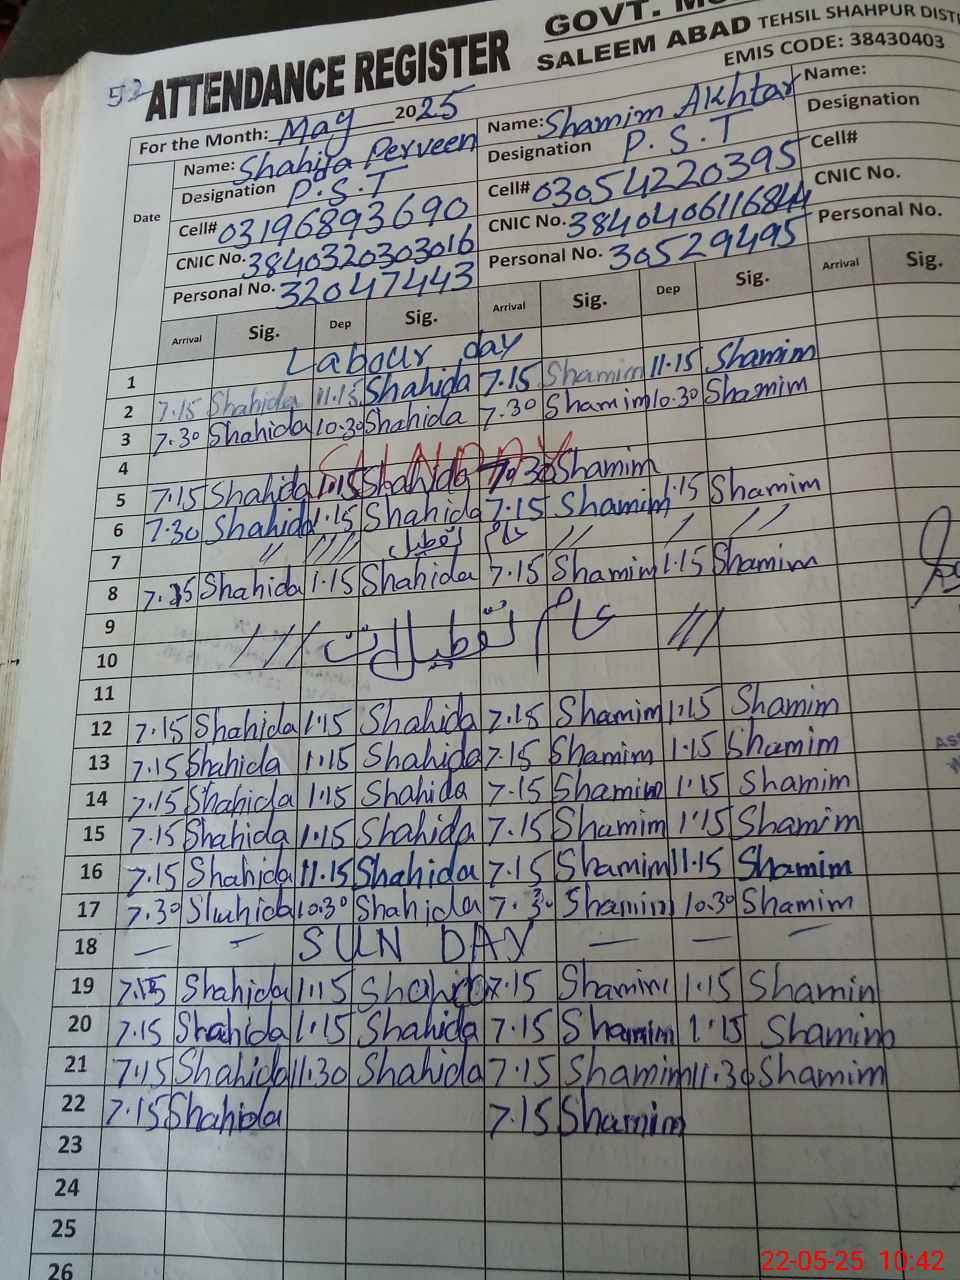 52 ATTENDANCE REGISTER GOVT.
SALEEM ABAD TEHSIL SHAHPUR
EMIS CODE: 38430403
For the Month: May 2025
Date Name: Shahida Perveen Name: Shamim Akhtar Name:
Designation P.S.T Designation P.S.T Designation
Cell# 03196893690 Cell# 03054220395 Cell#
CNIC No. 3840320303016 CNIC No. 3840406116844 CNIC No.
Personal No. 32047443 Personal No. 30529495 Personal No.
Arrival Sig. Dep Sig. Arrival Sig. Dep Sig. Arrival Sig.
1 Labour day
2 7.15 Shahida 11.15 Shahida 7.15 Shamim 11.15 Shamim
3 7.30 Shahida 10.30 Shahida 7.30 Shamim 10.30 Shamim
4 SUNDAY
5 7.15 Shahida 1.15 Shahida 7.30 Shamim
6 7.30 Shahida 1.15 Shahida 7.15 Shamim 1.15 Shamim
7 // //// عام تعطیل // / //
8 7.15 Shahida 1.15 Shahida 7.15 Shamim 1.15 Shamim
9
10 / / / عام تعطیلات ///
11
12 7.15 Shahida 1.15 Shahida 7.15 Shamim 1.15 Shamim
13 7.15 Shahida 1.15 Shahida 7.15 Shamim 1.15 Shamim
14 7.15 Shahida 1.15 Shahida 7.15 Shamim 1.15 Shamim
15 7.15 Shahida 1.15 Shahida 7.15 Shamim 1.15 Shamim
16 7.15 Shahida 11.15 Shahida 7.15 Shamim 11.15 Shamim
17 7.30 Shahida 10.30 Shahida 7.30 Shamim 10.30 Shamim
18 — — SUN DAY — — —
19 7.15 Shahida 1.15 Shahida 7.15 Shamim 1.15 Shamim
20 7.15 Shahida 1.15 Shahida 7.15 Shamim 1.15 Shamim
21 7.15 Shahida 11.30 Shahida 7.15 Shamim 11.30 Shamim
22 7.15 Shahida 7.15 Shamim
23
24
25
26
22-05-25 10:42